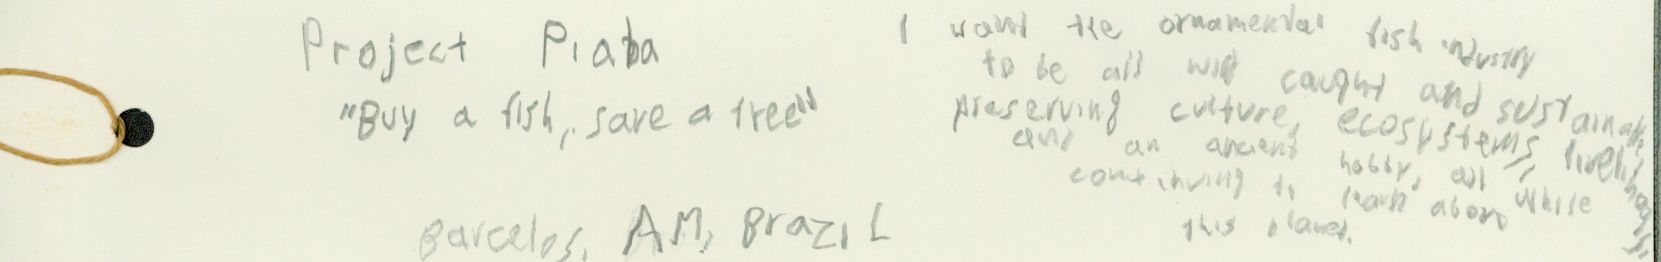 Project Piaba
"Buy a fish, save a tree"
Barcelos, AM, Brazil
I want the ornamental fish industry
to be all wild caught and sustainable
preserving culture, ecosystems, livelihoods,
and an ancient hobby, all while
continuing to learn about
this planet.